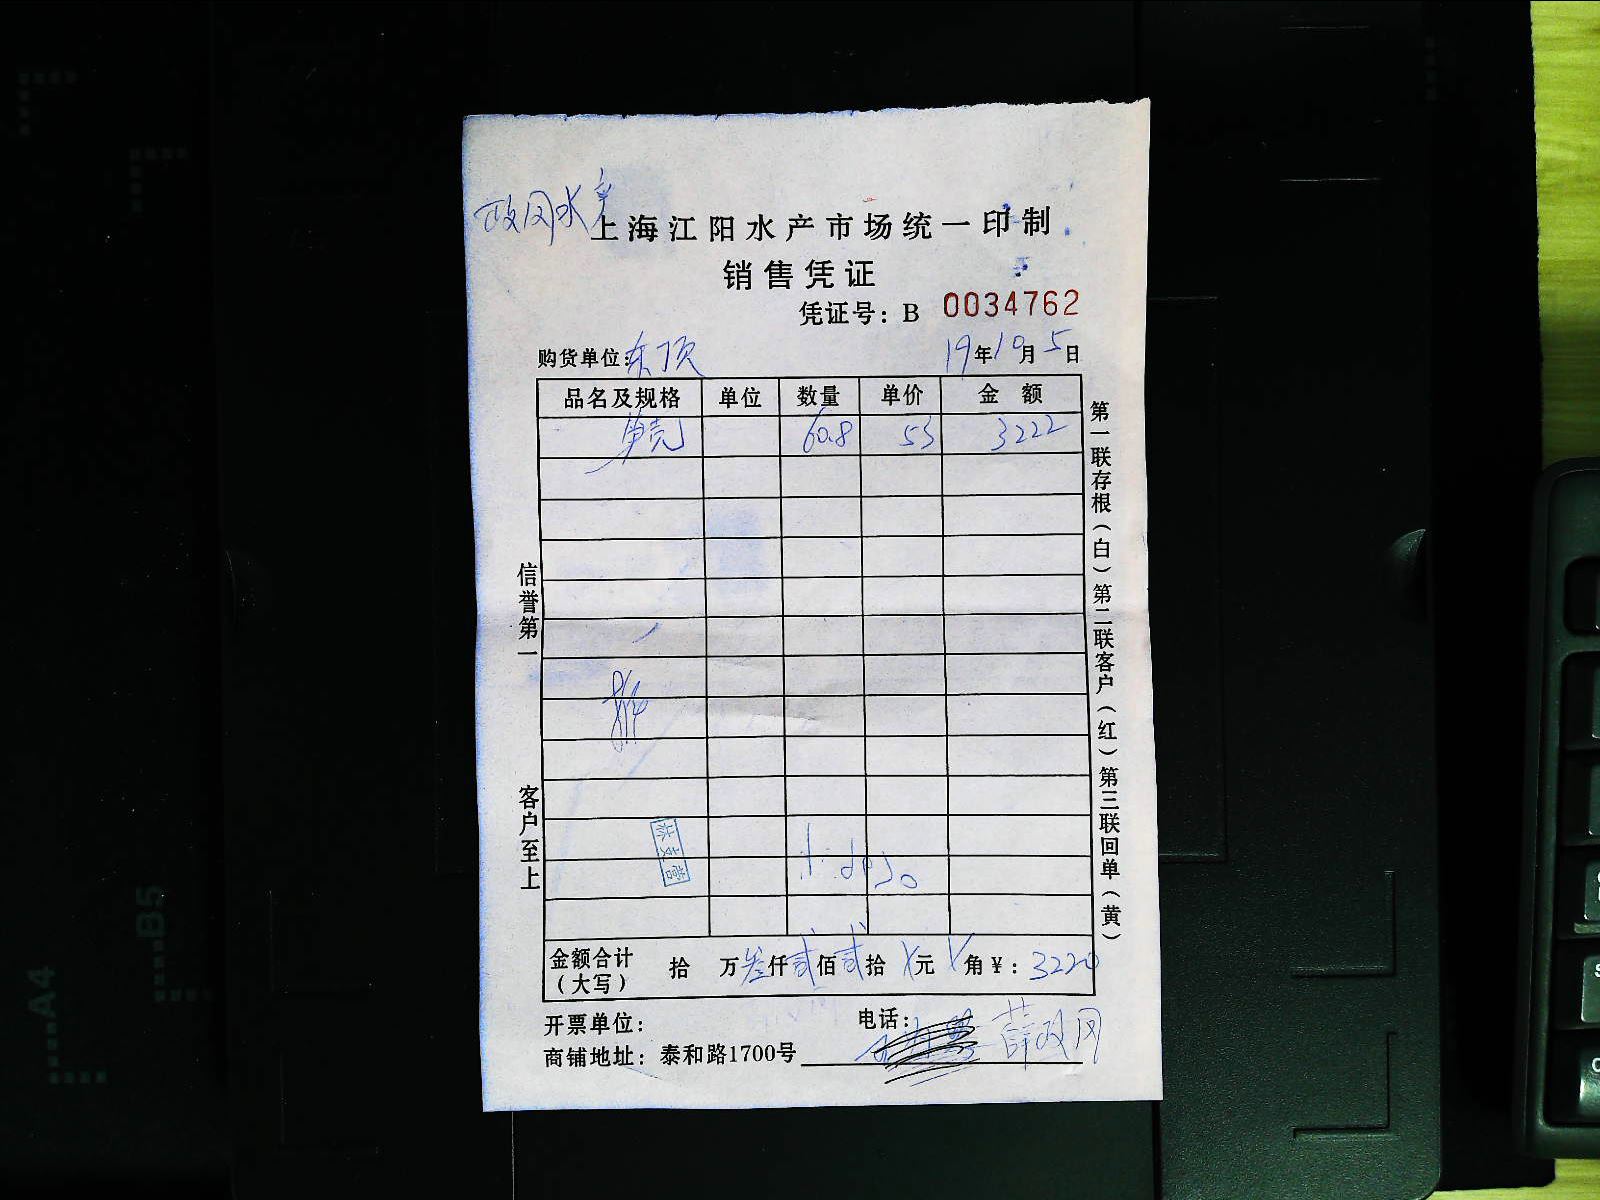 政网水产
上海江阳水产市场统一印制
销售凭证
凭证号：B 0034762
购货单位：东顶 19年10月5日
品名及规格 单位 数量 单价 金 额
60.8 53 3222
信誉第一
客户至上
第一联存根（白）第二联客户（红）第三联回单（黄）
林文营
金额合计（大写） 拾 万叁仟贰佰贰拾 元 角¥：3220
开票单位： 电话：
商铺地址：泰和路1700号 薛政网
A4
B5